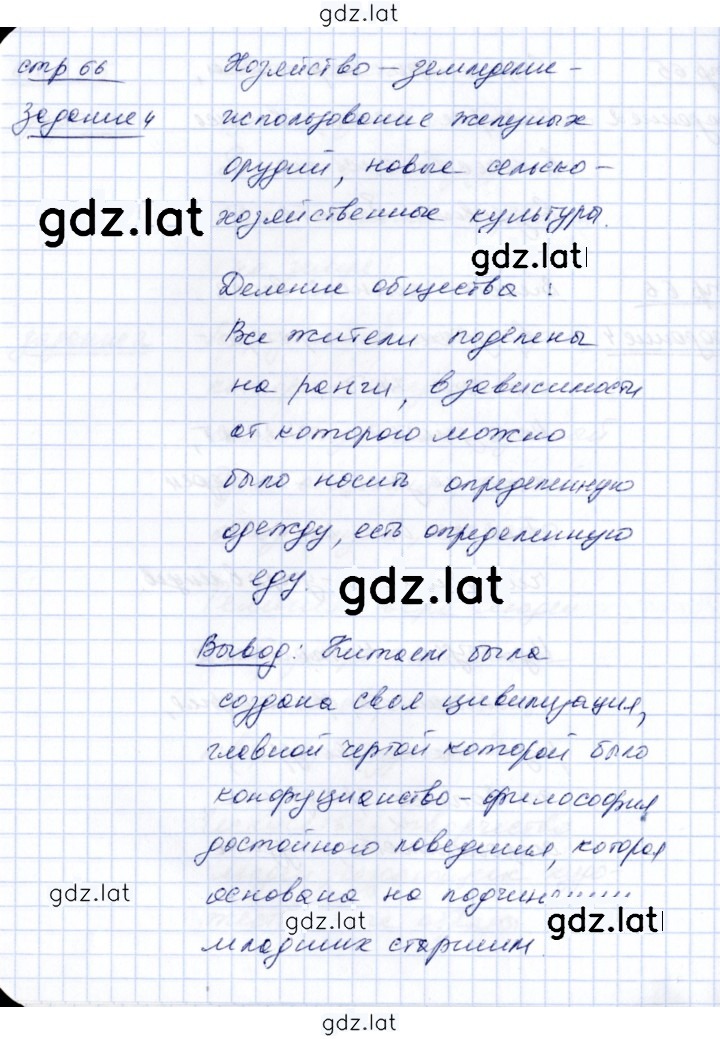 gdz.lat
стр 66
Хозяйство – земледелие –
задание 4
использование железных
орудий, новые сельско-
gdz.lat
хозяйственные культуры.
gdz.lat
Деление общества:
Все жители поделены
на ранги, в зависимости
от которого можно
было носить определенную
одежду, есть определенную
еду.
gdz.lat
Вывод: Китаем была
создана своя цивилизация,
главной чертой которой было
конфуцианство – философия
достойного поведения, которая
gdz.lat
основана на
gdz.lat
gdz.lat
младших старшим.
gdz.lat